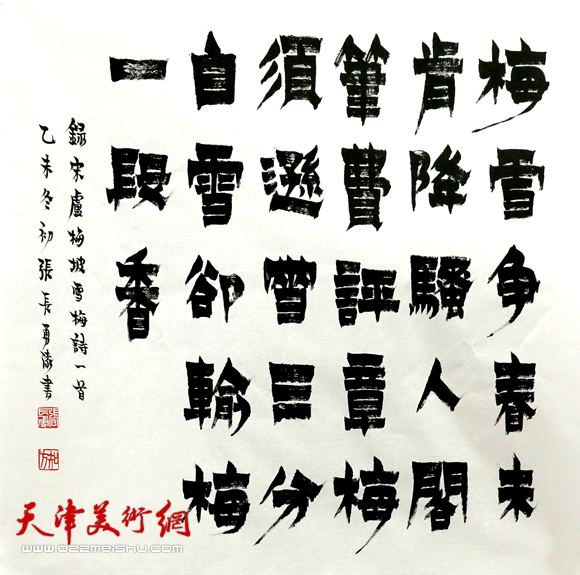 梅雪争春未
肯降騷人閣
筆費評章梅
須遜雪三分
白雪卻輸梅
一段香
錄宋盧梅坡雪梅詩一首
乙未冬初張長勇漆書
天津美術網
www.022meishu.com